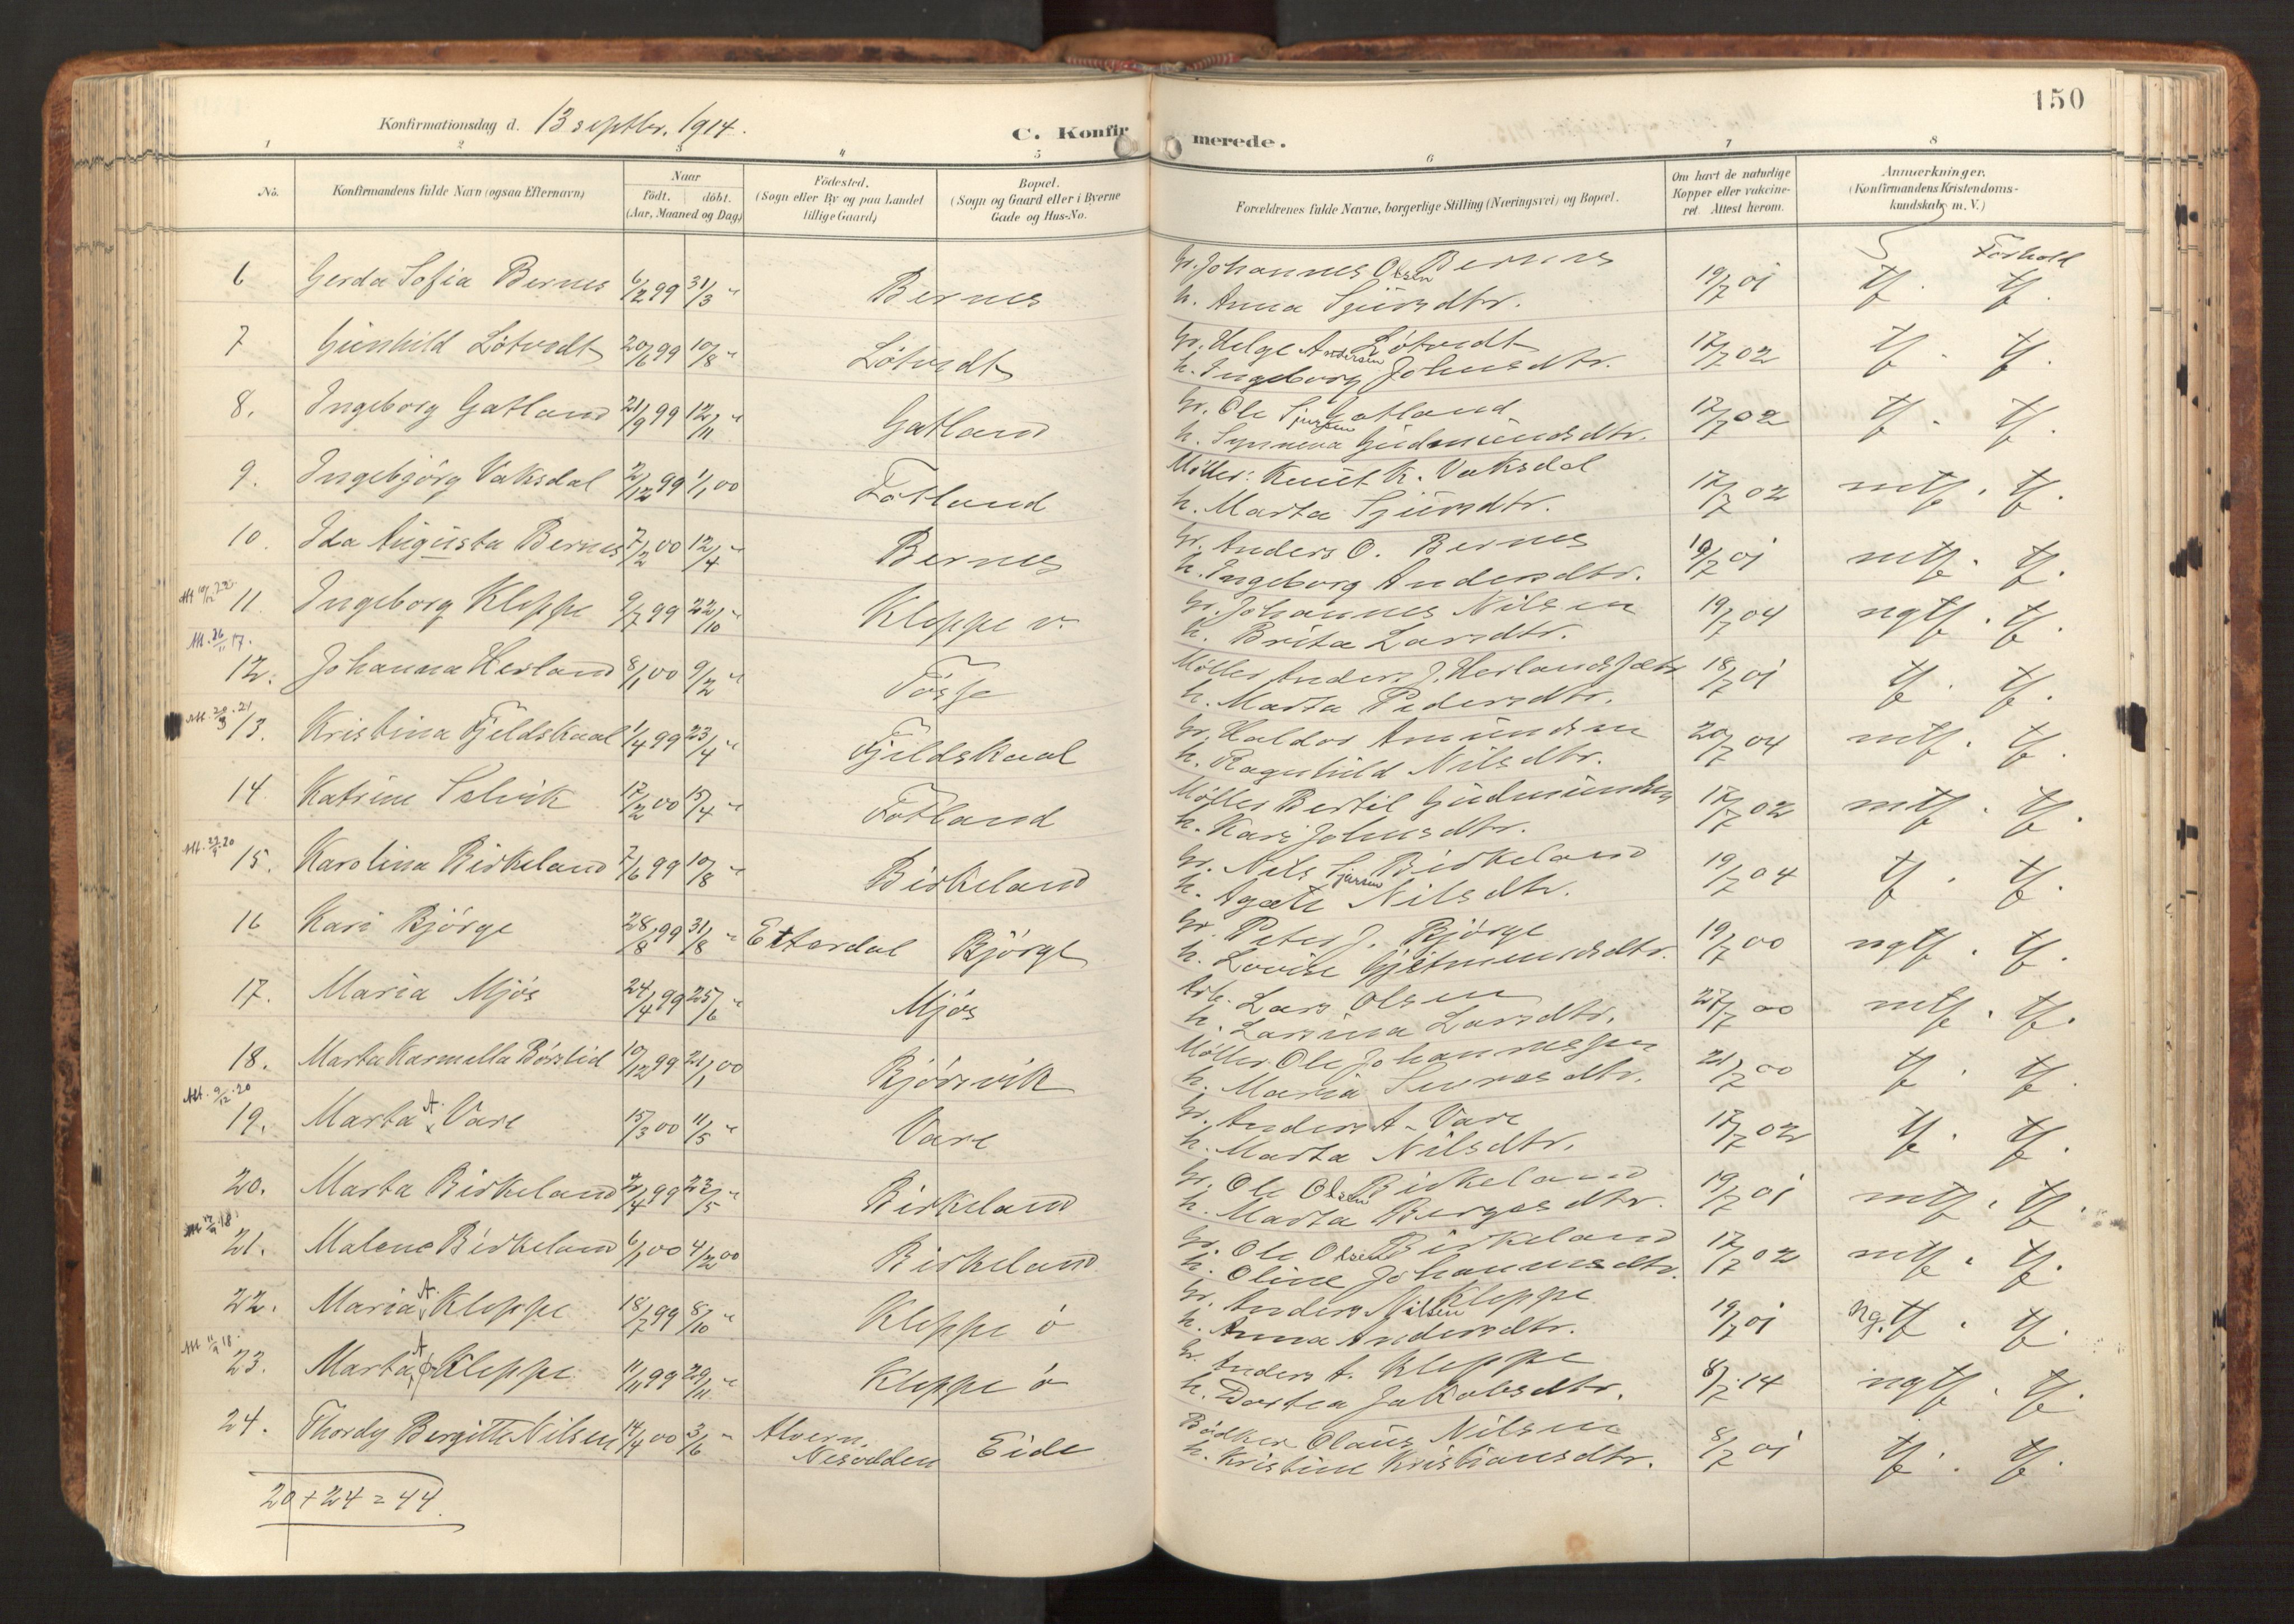 150
Konfirmationsdag d. 13 septbr. 1914.
C. Konfirmerede.
1 2 3 4 5 6 7 8
No. Konfirmandens fulde Navn (ogsaa Efternavn) Naar födt. döbt. (Aar, Maaned og Dag) Födested. (Sogn eller By og paa Landet tillige Gaard) Bopæl. (Sogn og Gaard eller i Byerne Gade og Hus-No. Forældrenes fulde Navne, borgerlige Stilling (Næringsvei) og Bopæl. Om havt de naturlige Kopper eller vakcineret. Attest herom. Anmærkninger. (Konfirmandens Kristendomskundskab m. V.)
Forhold
6 Gerda Sofia Bernes 6/2 99 31/3 " Bernes Gr. Johannes Olsen Bernes 19/7 01 tf. tf.
h. Anna Sjursdtr.
7 Gunhild Lötvedt 20/6 99 10/8 " Lötvedt Gr. Helge Andersen Lötvedt 17/7 02 tf. tf.
h. Ingeborg Johnsdtr.
8. Ingeborg Gatland 21/9 99 12/11 " Gatland Gr. Ole Sjursen Gatland 17/7 02 tf. tf.
h. Synneva Gudmundsdtr.
9. Ingebjörg Vaksdal 2/12 99 1/1 00 Fotland Möller: Knut K. Vaksdal 17/7 02 mtf. tf.
h. Marta Sjursdtr.
10. Ida Augusta Bernes 7/2 00 12/4 " Bernes Gr. Anders O. Bernes 19/7 01 mtf. tf.
h. Ingeborg Andersdtr.
Att 19/12 22.
11. Ingeborg Kleppe 9/7 99 22/10 " Kleppe v. Gr. Johannes Nilsen 19/7 04 ngtf. tf.
h. Brita Larsdtr.
Att. 26/11 17.
12. Johanna Herland 8/1 00 9/2 " Fosse Möller Anders J. Herlandsfætr 18/7 01 tf. tf.
h. Marta Pedersdtr.
Att. 20/3 21
13. Kristina Fjeldskaal 1/4 99 23/4 " Fjeldskaal Gr. Haldor Amundsen 20/7 04 mtf. tf.
h. Ragnhild Nilsdtr.
14 Katrine Selvik 17/2 00 15/4 " Fotland Möller Bertil Gudmundsen 17/7 02 mtf. tf.
h. Kari Johnsdtr.
Att. 27/9 20
15. Karolina Birkeland 7/6 99 10/8 " Birkeland Gr. Nils Sjursen Birkeland 19/7 04 tf. tf.
h. Agate Nilsdtr.
16 Kari Bjørge 28/8 99 31/8 " Etterdal Bjørge Gr. Peter J. Bjørge 19/7 00 ngtf. tf.
h. Lovise Gjetmundsdtr.
17. Maria Mjös 24/4 99 25/6 " Mjös Arb. Lars Olsen 27/7 00 mtf. tf.
h. Larsina Larsdtr.
18. Marta Karmella Börslid 10/12 99 21/1 00 Bjørsvik Möller Ole Johannessen 21/7 00 tf. tf.
h. Maria Sivertsdtr.
Att. 9/12 20
19. Marta A. Vare 15/3 00 11/5 " Vare Gr. Anders A. Vare 17/7 02 tf. tf.
h. Marta Nilsdtr.
20. Marta Birkeland 2/4 99 22/5 " Birkeland Gr. Ole Olsen Birkeland 19/7 01 mtf. tf.
h. Marta Bergesdtr.
Att 17/9 18.
21. Malene Birkeland 6/1 00 4/2 00 Birkeland Gr. Ole Olsen Birkeland 17/7 02 mtf. tf.
h. Oline Johannesdtr.
22. Maria A. Kleppe 18/7 99 8/10 " Kleppe ö Gr. Anders Nilsen Kleppe 19/7 01 ng. tf. tf.
h. Anna Andersdtr.
Att 11/9 18.
23. Marta A. Kleppe 11/11 99 29/11 " Kleppe ö Gr. Anders A. Kleppe 8/7 14 ngtf. tf.
h. Dortea Jakobsdtr.
24. Thordy Bergitte Nilsen 14/4 00 3/6 " Alvern, Nesodden Eide Bødker Olaus Nilsen 8/7 01 tf. tf.
h. Kristine Kristiansdtr.
20 + 24 = 44.